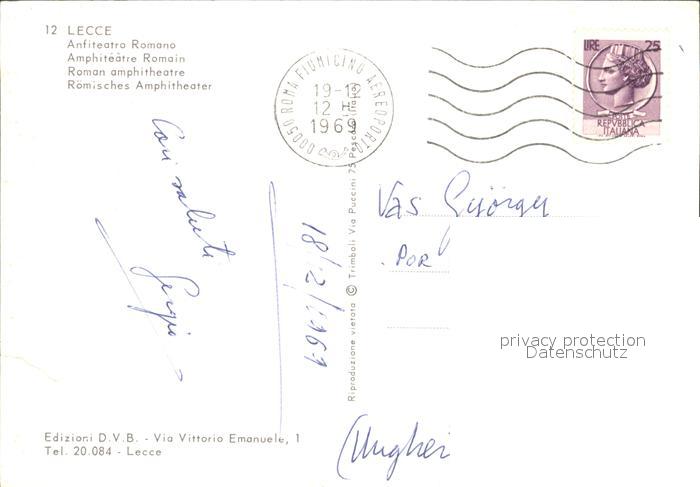 12 LECCE
Anfiteatro Romano
Amphitéâtre Romain
Roman amphitheatre
Römisches Amphiteater
00050 ROMA FIUMICINO AEREOPORTO
19-12
12 H
1969
LIRE 25
POSTE
REPVBBLICA
ITALIANA
Cari saluti
Sergio
18/12/1969
Riproduzione vietata © Trimboli Via Puccini 75 Pescara (Italia)
Vas György
POR
privacy protection
Datenschutz
(Ungher
Edizioni D.V.B. - Via Vittorio Emanuele, 1
Tel. 20.084 - Lecce